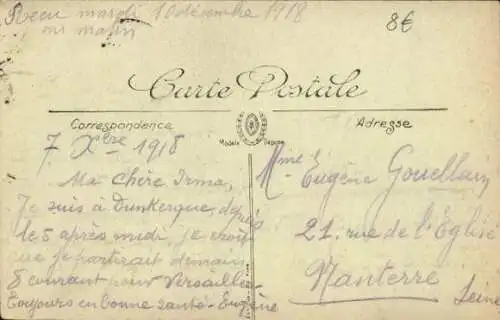 Reçu mardi 10 décembre 1918
au matin
8€
Carte Postale
Correspondance
Adresse
Modèle Déposé
7 Xbre 1918
Ma Chère Irma,
Je suis à Dunkerque, depuis
le 5 après midi, je crois
que je partirait demain
8 courant pour Versailles
Toujours en bonne santé - Eugène
Mme Eugène Gouellain
21 rue de l'Église
Nanterre
Seine